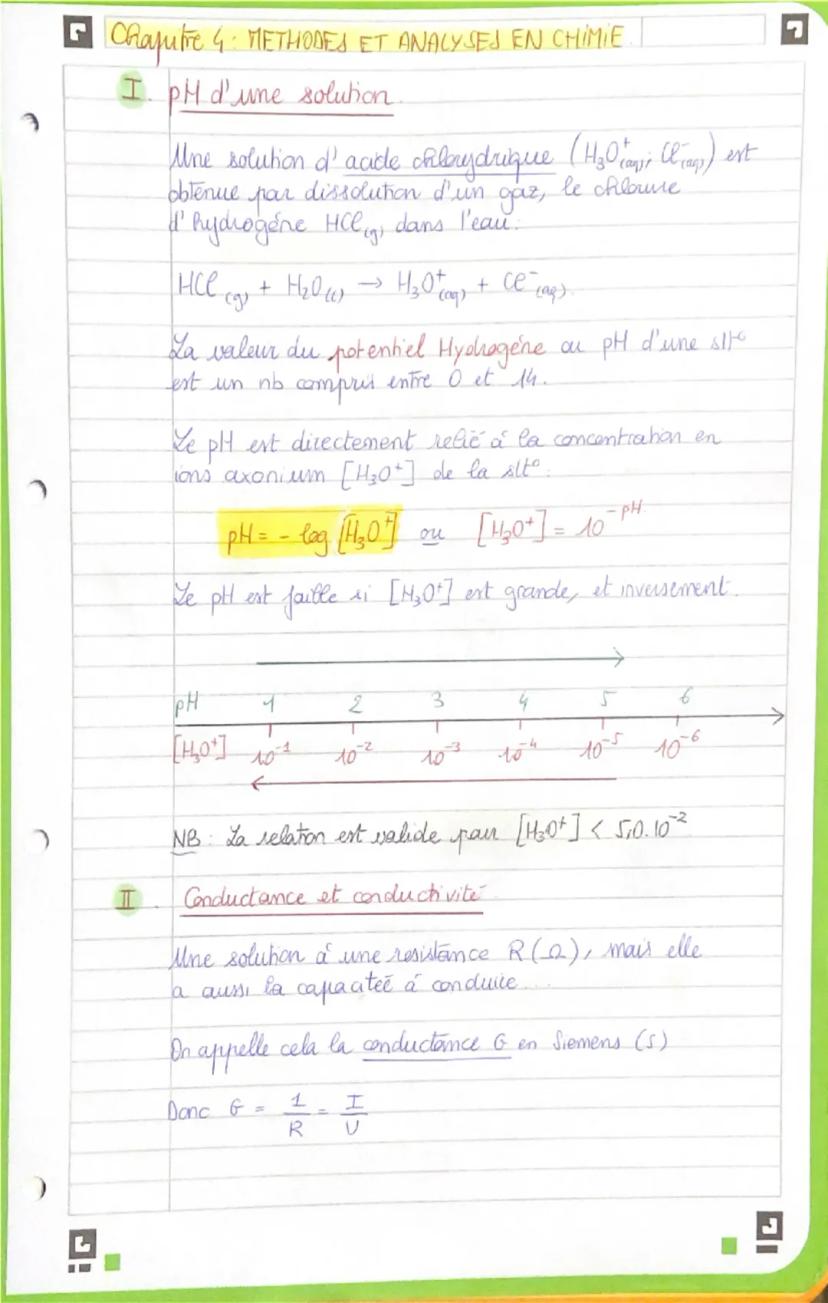 Chapitre 4 : METHODES ET ANALYSES EN CHIMIE.
I. pH d'une solution
Une solution d'acide chlorydrique (H₃O⁺(aq); Cl⁻(aq)) est
obtenue par dissolution d'un gaz, le chlorure
d'hydrogéne HCl(g) dans l'eau:
HCl(g) + H₂O(l) → H₃O⁺(aq) + Cl⁻(aq)
La valeur du potentiel Hydrogéne ou pH d'une slt°
est un nb compris entre 0 et 14.
Le pH est directement relié á la concentration en
ions axonium [H₃O⁺] de la slt°:
pH = - log [H₃O⁺] ou [H₃O⁺] = 10^-pH
Le pH est faible si [H₃O⁺] est grande, et inversement.
pH 1 2 3 4 5 6
[H₃O⁺] 10⁻¹ 10⁻² 10⁻³ 10⁻⁴ 10⁻⁵ 10⁻⁶
NB : La relation est valide pour [H₃O⁺] < 5,0.10⁻²
II. Conductance et conductivité
Une solution á une resistance R(Ω), mais elle
a aussi la capacitée á conduire...
On appelle cela la conductance G en Siemens (S)
Donc G = 1/R = I/U